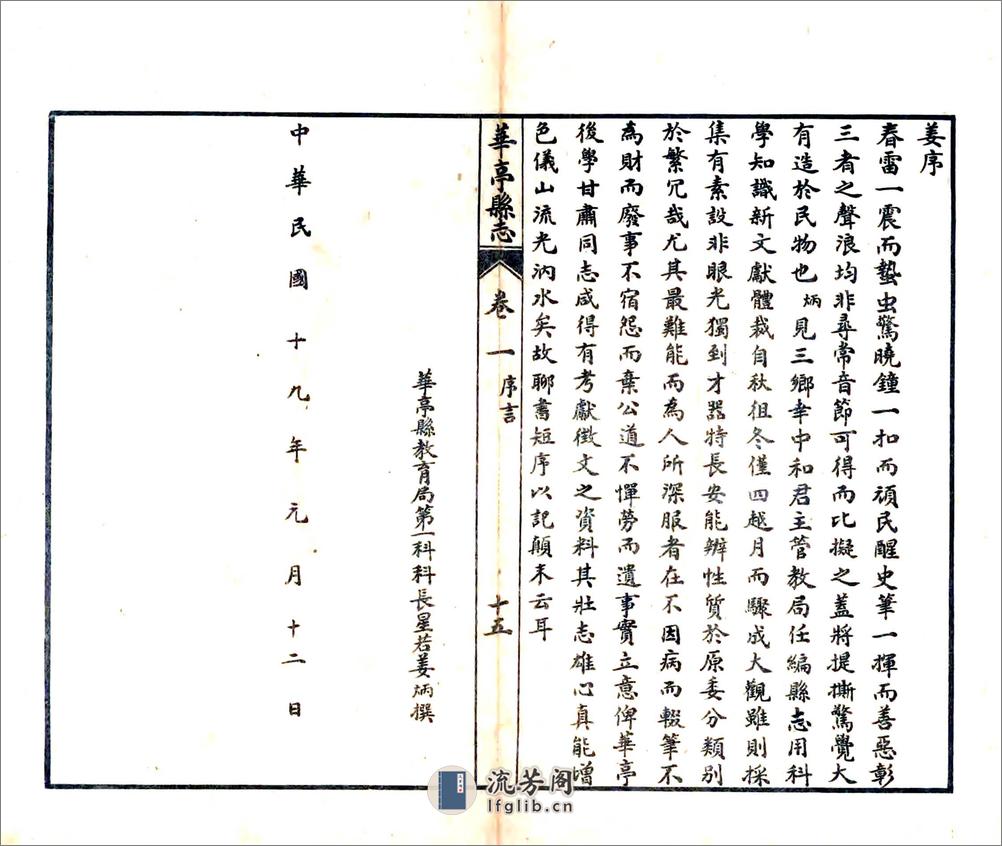 姜序
春雷一震而蟄虫驚曉鐘一扣而頑民醒史筆一揮而善惡彰
三者之聲浪均非尋常音節可得而比擬之蓋將提撕驚覺大
有造於民物也炳見三鄉幸中和君主管教局任編縣志用科
學知識新文獻體裁自秋徂冬僅四越月而驟成大觀雖則採
集有素設非眼光獨到才器特長安能辨性質於原委分類別
於繁冗哉尤其最難能而為人所深服者在不因病而輟筆不
為財而廢事不宿怨而棄公道不憚勞而遺事實立意俾華亭
後學甘肅同志咸得有考獻徵文之資料其壯志雄心真能增
色儀山流光汭水矣故聊書短序以記顛末云耳
華亭縣志
卷一
序言
十五
華亭縣教育局第一科科長星若姜炳撰
中華民國十九年元月十二日
流芳阁
lfglib.cn